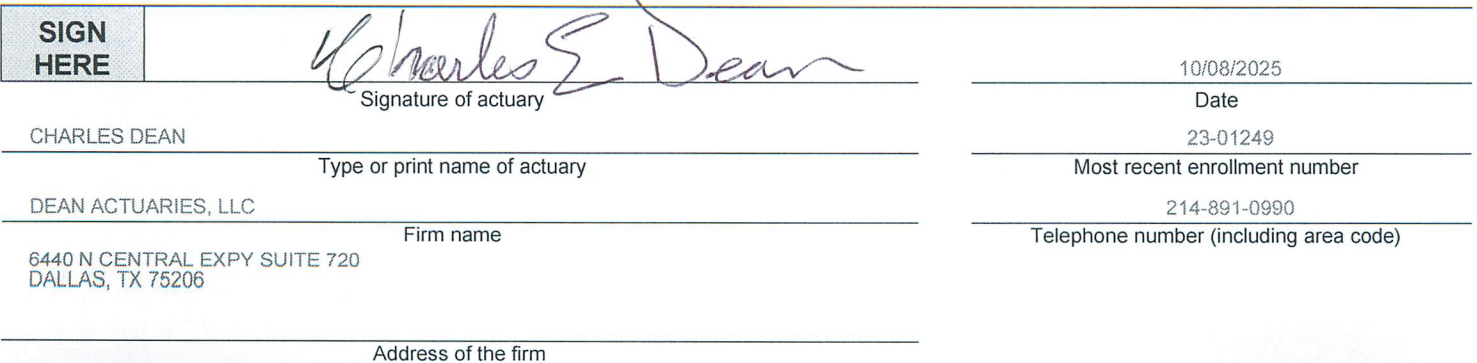 SIGN
HERE
Charles E Dean
10/08/2025
Signature of actuary
Date
CHARLES DEAN
23-01249
Type or print name of actuary
Most recent enrollment number
DEAN ACTUARIES, LLC
214-891-0990
Firm name
Telephone number (including area code)
6440 N CENTRAL EXPY SUITE 720
DALLAS, TX 75206
Address of the firm